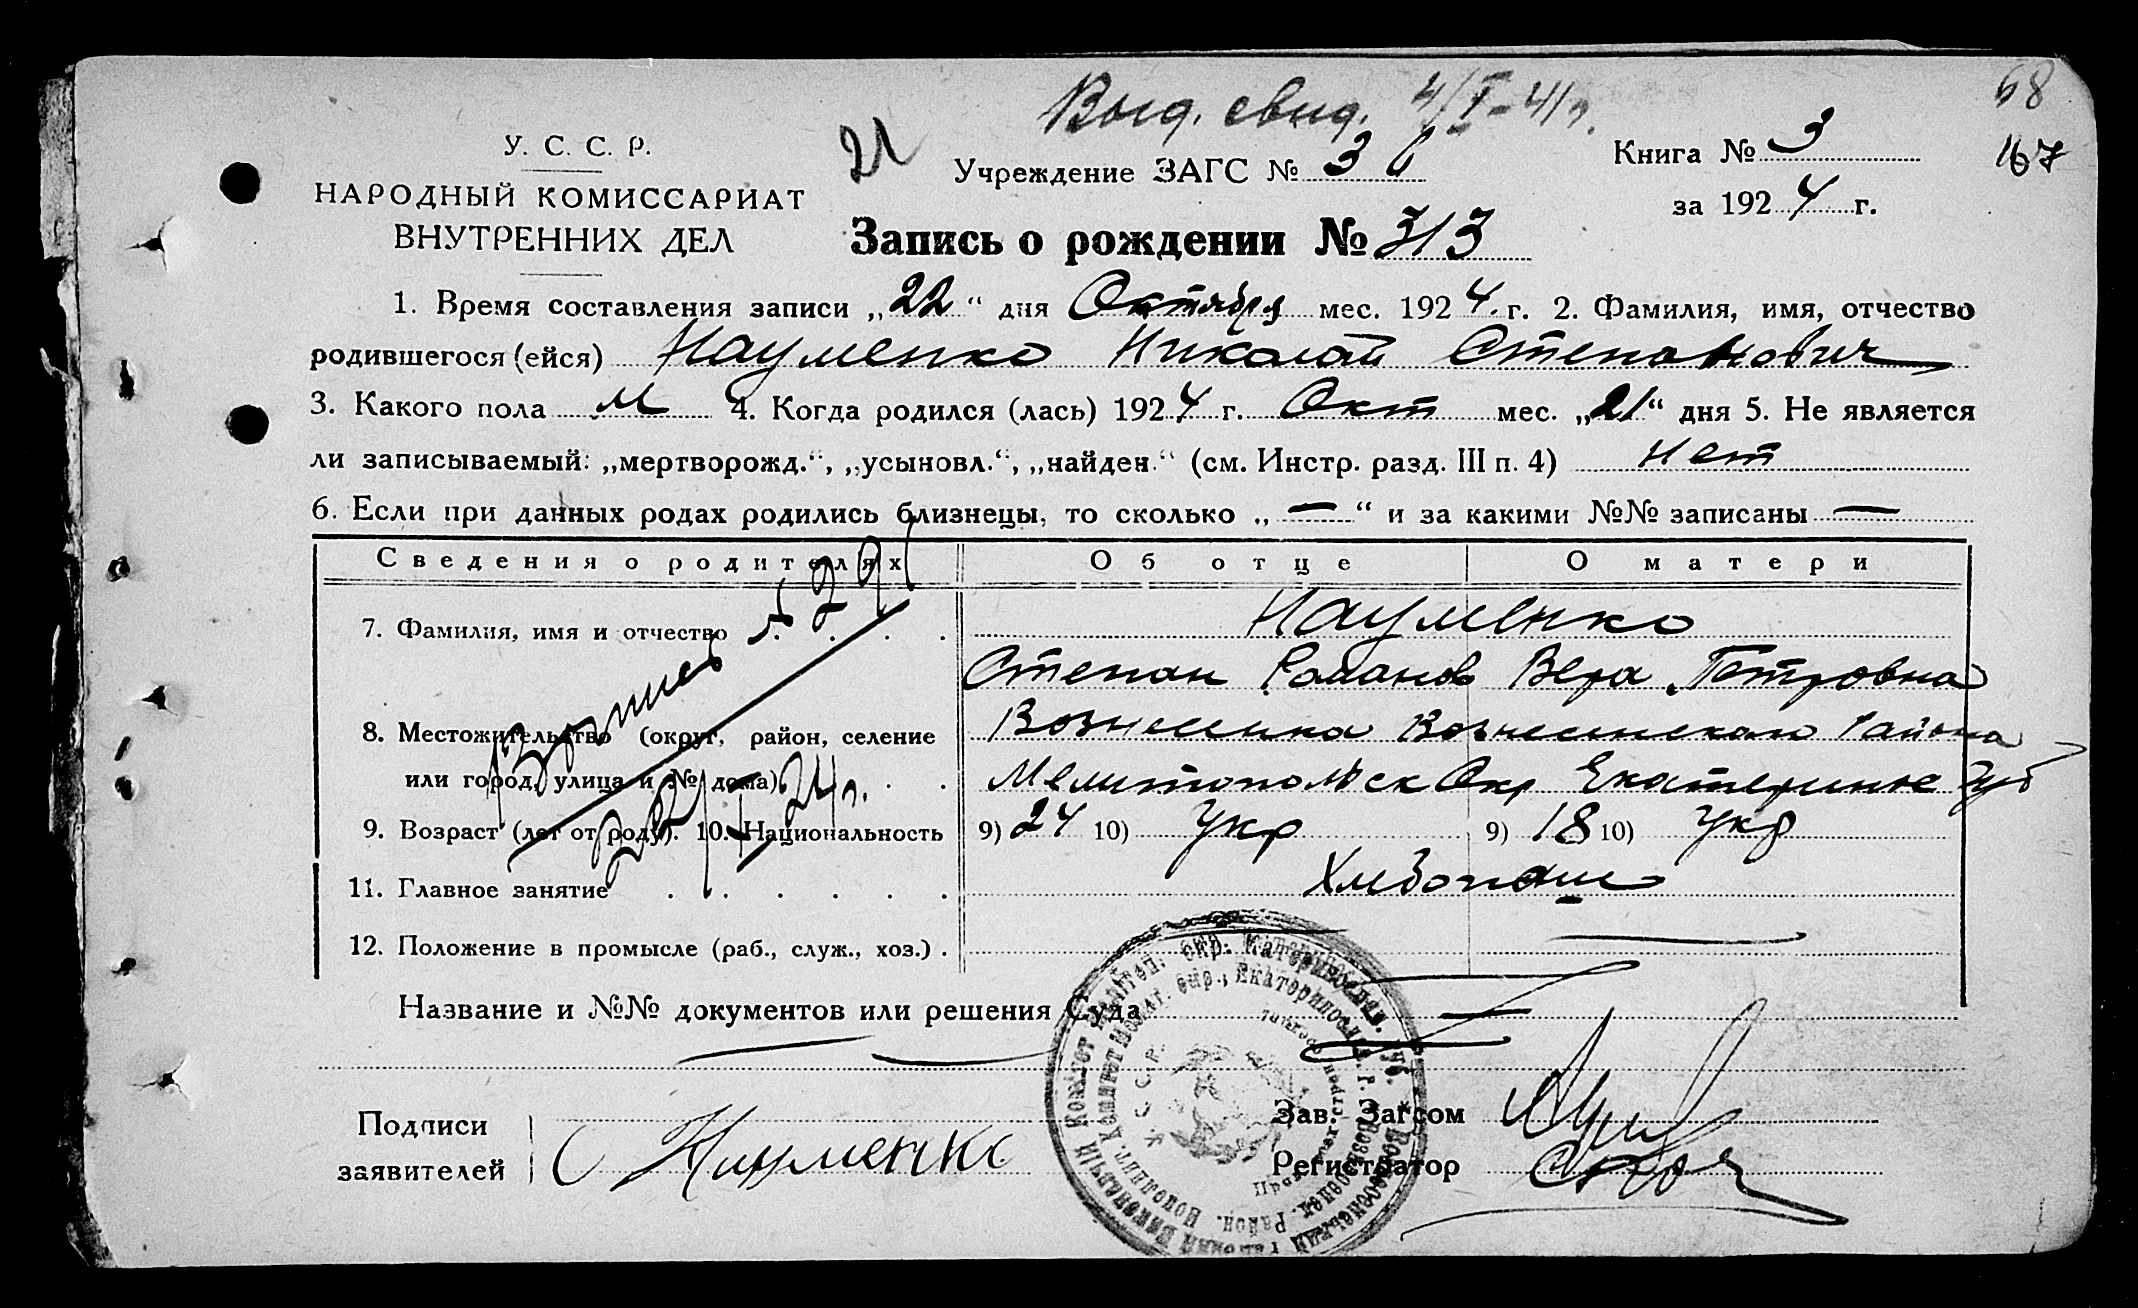 68
Выд. свид. 4/I-41г.
21
У. С. С. Р.
НАРОДНЫЙ КОМИССАРИАТ
ВНУТРЕННИХ ДЕЛ
Учреждение ЗАГС №
Книга № 3
167
за 1924 г.
Запись о рождении № 313
1. Время составления записи „22“ дня Октября мес. 1924 г. 2. Фамилия, имя, отчество
родившегося (ейся) Науменко Николай Степанович
3. Какого пола М 4. Когда родился (лась) 1924 г. Окт мес. „21“ дня 5. Не является
ли записываемый: „мертворожд.“, „усыновл.“, „найден.“ (см. Инстр. разд. III п. 4) Нет
6. Если при данных родах родились близнецы, то сколько „—“ и за какими №№ записаны —
Сведения о родителях Об отце О матери
7. Фамилия, имя и отчество . . . . Науменко
Степан Романов Вера Петровна
8. Местожительство (округ, район, селение Вознесенка Вознесенского Района
или город, улица и № дома) . . . Мелитопольск Окр Екатеринос Губ
9. Возраст (лет от роду). 10. Национальность 9) 24 10) Укр 9) 18 10) Укр
11. Главное занятие . . . . . . Хлебопаш
12. Положение в промысле (раб., служ., хоз.) .
Название и №№ документов или решения Суда
Подписи
заявителей
С Науменко
Зав. Загсом
Регистратор